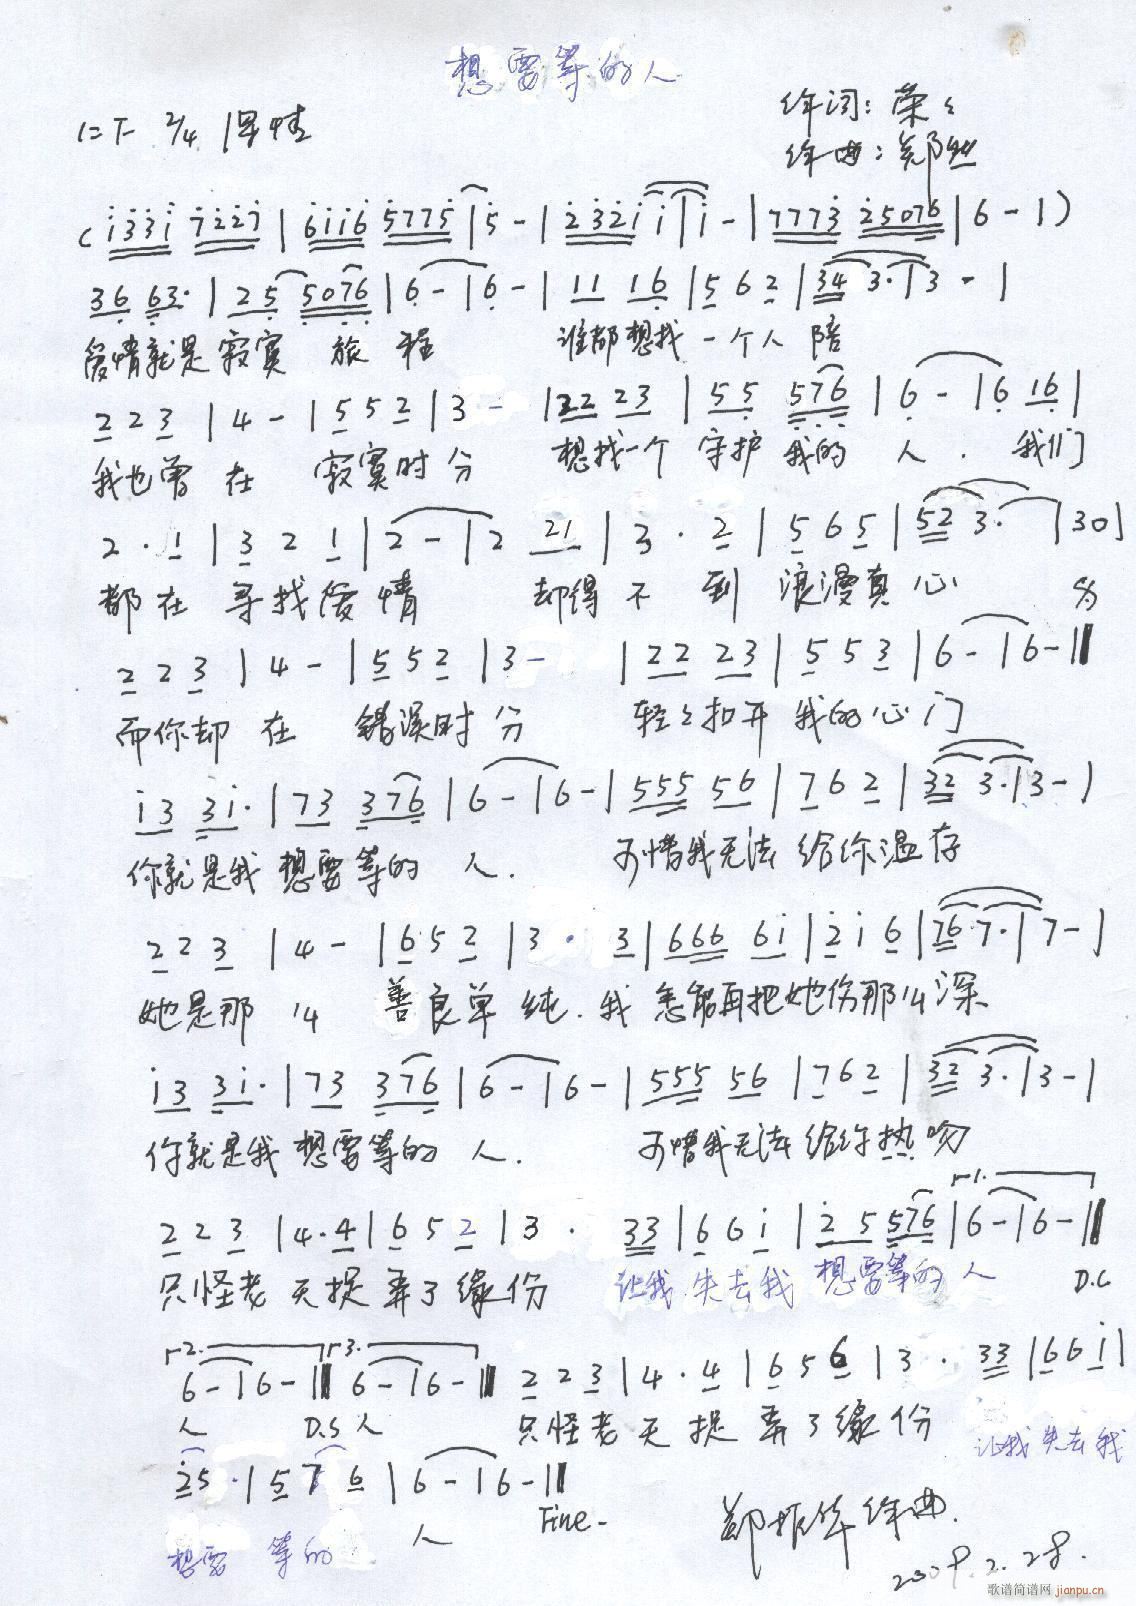 想要等的人
1=F 2/4 深情
作词：荣々
作曲：郑
( i33i 7227 | 6116 5775 | 5 - | 2321 i | i - | 7773 25076 | 6 - | )
36 63· | 25 5076 | 6 - | 6 - | 11 16 | 5 6 2 | 34 3· | 3 - |
爱情就是寂寞 旅 程 谁都想找一个人 陪
2 2 3 | 4 - | 5 5 2 | 3 - | 22 23 | 55 576 | 6 - | 6 16 |
我也曾 在 寂寞时分 想找一个 守护 我的 人. 我们
2 · 1 | 3 2 1 | 2 - | 2 21 | 3 · 2 | 5 6 5 | 52 3· | 30 |
都在 寻找爱 情 却得 不 到 浪漫真心
2 2 3 | 4 - | 5 5 2 | 3 - | 22 23 | 5 5 3 | 6 - | 6 - ||
而你却 在 错误时 分 轻々扣开 我的心门
i3 3i· | 73 376 | 6 - | 6 - | 555 56 | 7 6 2 | 32 3· | 3 - |
你就是我 想要等的 人. 可惜我无法 给你温存
2 2 3 | 4 - | 6 5 2 | 3 · 3 | 666 6i | 2 i 6 | 76 7· | 7 - |
她是那 么 善良单 纯. 我 怎能再把她伤那么深
i3 3i· | 73 376 | 6 - | 6 - | 555 56 | 7 6 2 | 32 3· | 3 - |
你就是我 想要等的 人. 可惜我无法 给你热吻
1.
2 2 3 | 4 · 4 | 6 5 2 | 3 · 33 | 6 6 i | 2 5 576 | 6 - | 6 - ||
只怪老 天捉弄了缘份 让我 失去我 想要等的 人 D.C
2. 3.
6 - | 6 - || 6 - | 6 - || 2 2 3 | 4 · 4 | 6 5 6 | 3 · 33 | 6 6 i |
人 D.S 人 只怪老 天 捉 弄了缘 份 让我 失去我
25 · | 5 7 6 | 6 - | 6 - ||
想要 等的 人 Fine-
郑振华作曲.
2009.2.28.
歌谱简谱网 jianpu.cn